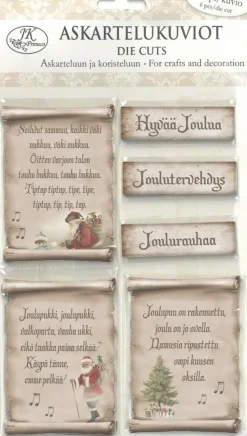 JK
Primeco
6 pcs/die cut
ASKARTELUKUVIOT
DIE CUTS
Askarteluun ja kotisteluun • For crafts and decoration
Soihdut sammuu, kaikki väki
nukkuu, väki nukkuu.
Oitten varjoon talon
touhu hukkuu, touhu hukkuu.
Tip tap tip tap, tipe, tipe,
tip tap, tip, tip, tap.
Hyvää Joulua
Joulutervehdys
Joulurauhaa
Joulupukki, joulupukki,
valkoparta, vanha ukki,
eikö taakka paina selkää?
Käypä tänne,
emme pelkää!
Joulupuu on rakennettu,
joulu on jo ovella.
Namusia ripustettu
ompi kuusen
oksilla.